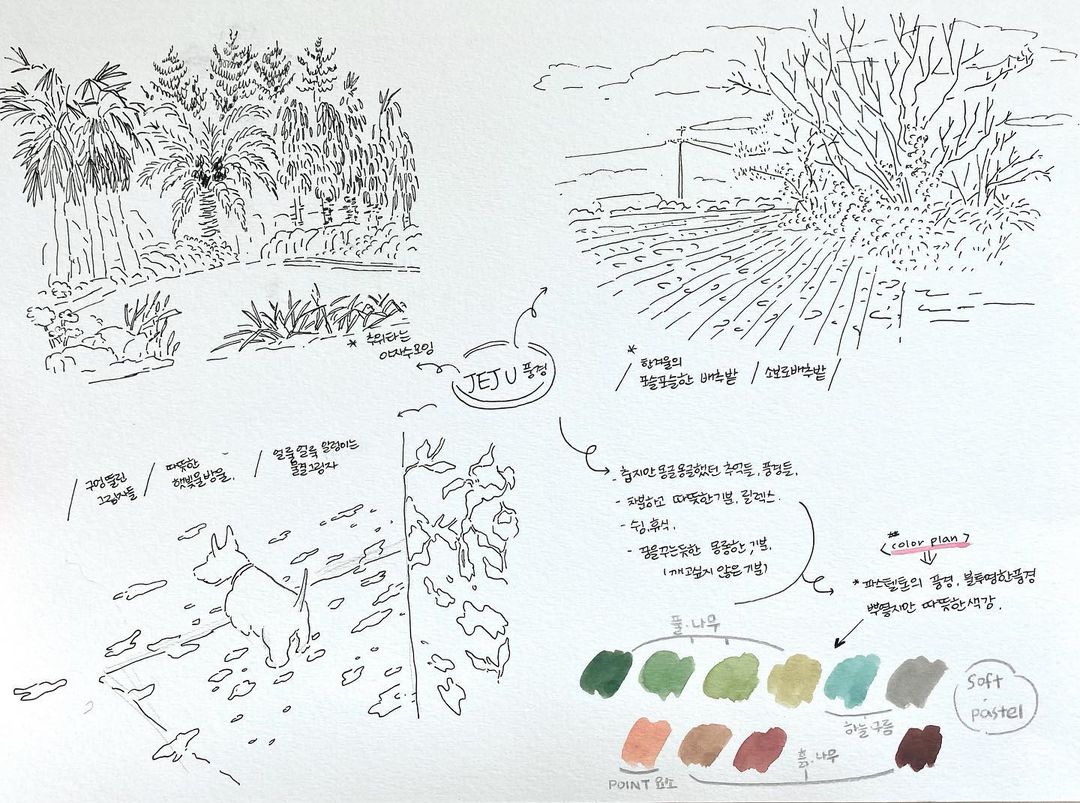 * 추위타는
야자수모임
JEJU 풍경
* 한겨울의
포슬포슬한 배추밭 / 소보로배추밭 /
/ 구멍뚫린
그림자들
/ 따뜻한
햇빛을받을.
/ 얼룩얼룩 일렁이는
물결그림자
- 춥지만 몽글몽글했던 추억들, 풍경들,
- 차분하고 따뜻한기분, 릴렉스.
- 쉼,휴식,
- 꿈을꾸는듯한 몽롱한 기분.
(깨고싶지 않은기분)
<color plan>
* 파스텔톤의 풍경, 불투명한풍경
뿌옇지만 따뜻한색감.
풀·나무
하늘·구름
soft
pastel
POINT 요소
흙·나무